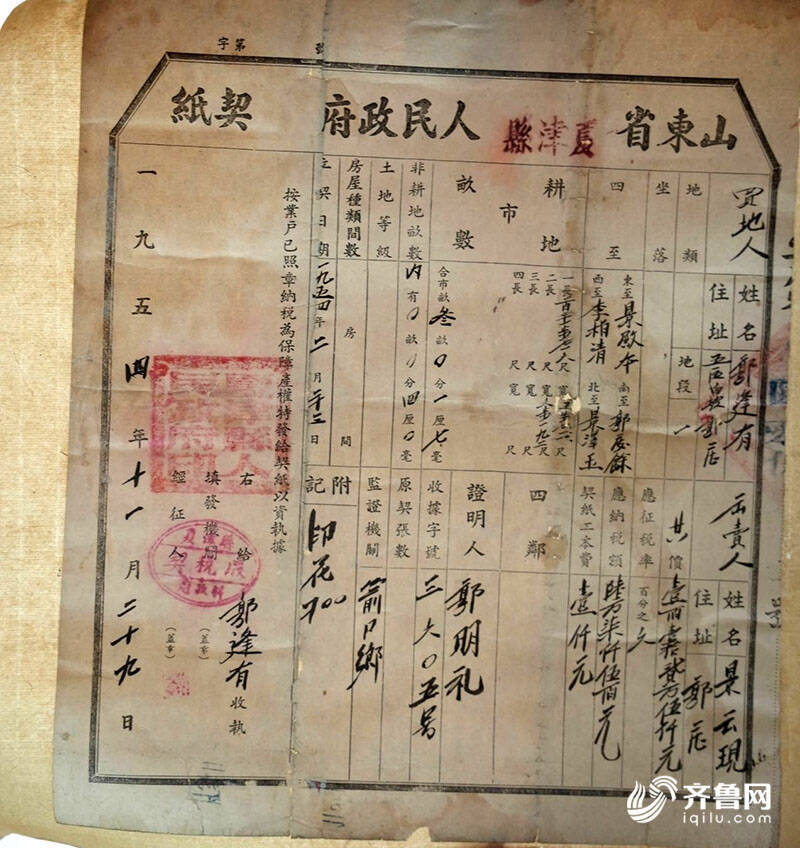 字第 號
山東省夏津縣人民政府契紙
買地人
姓名 郭逢有
住址
出賣人
姓名 景云現
住址 郭庄
地類
地段 一
共價
坐落
應征税率 百分之六
四至
東至
南至郭慶餘
西至李柏清
北至景澤玉
應納税額 陸万柒仟伍百元
契紙工本費 壹仟元
耕地
市
畝數
一長
尺寬
二長
尺寬
三長
尺寬
四長
尺寬
尺
合市畝叁畝〇分一厘七毫
四鄰
證明人 郭明礼
非耕地畝數
内有〇畝〇分四厘〇毫
收據字號 三六〇五号
土地等級
原契張數
房屋種類間數
房
間
監證機關 箭口鄉
立契日期 一九五四年二月二十三日
附記 印花700
按業戶已照章納税為保障產權特發給契紙以資執據
右給 郭逢有 收執
填發機關 (蓋章)
經征人 (蓋章)
一九五四年十一月二十九日
齐鲁网
iqilu.com